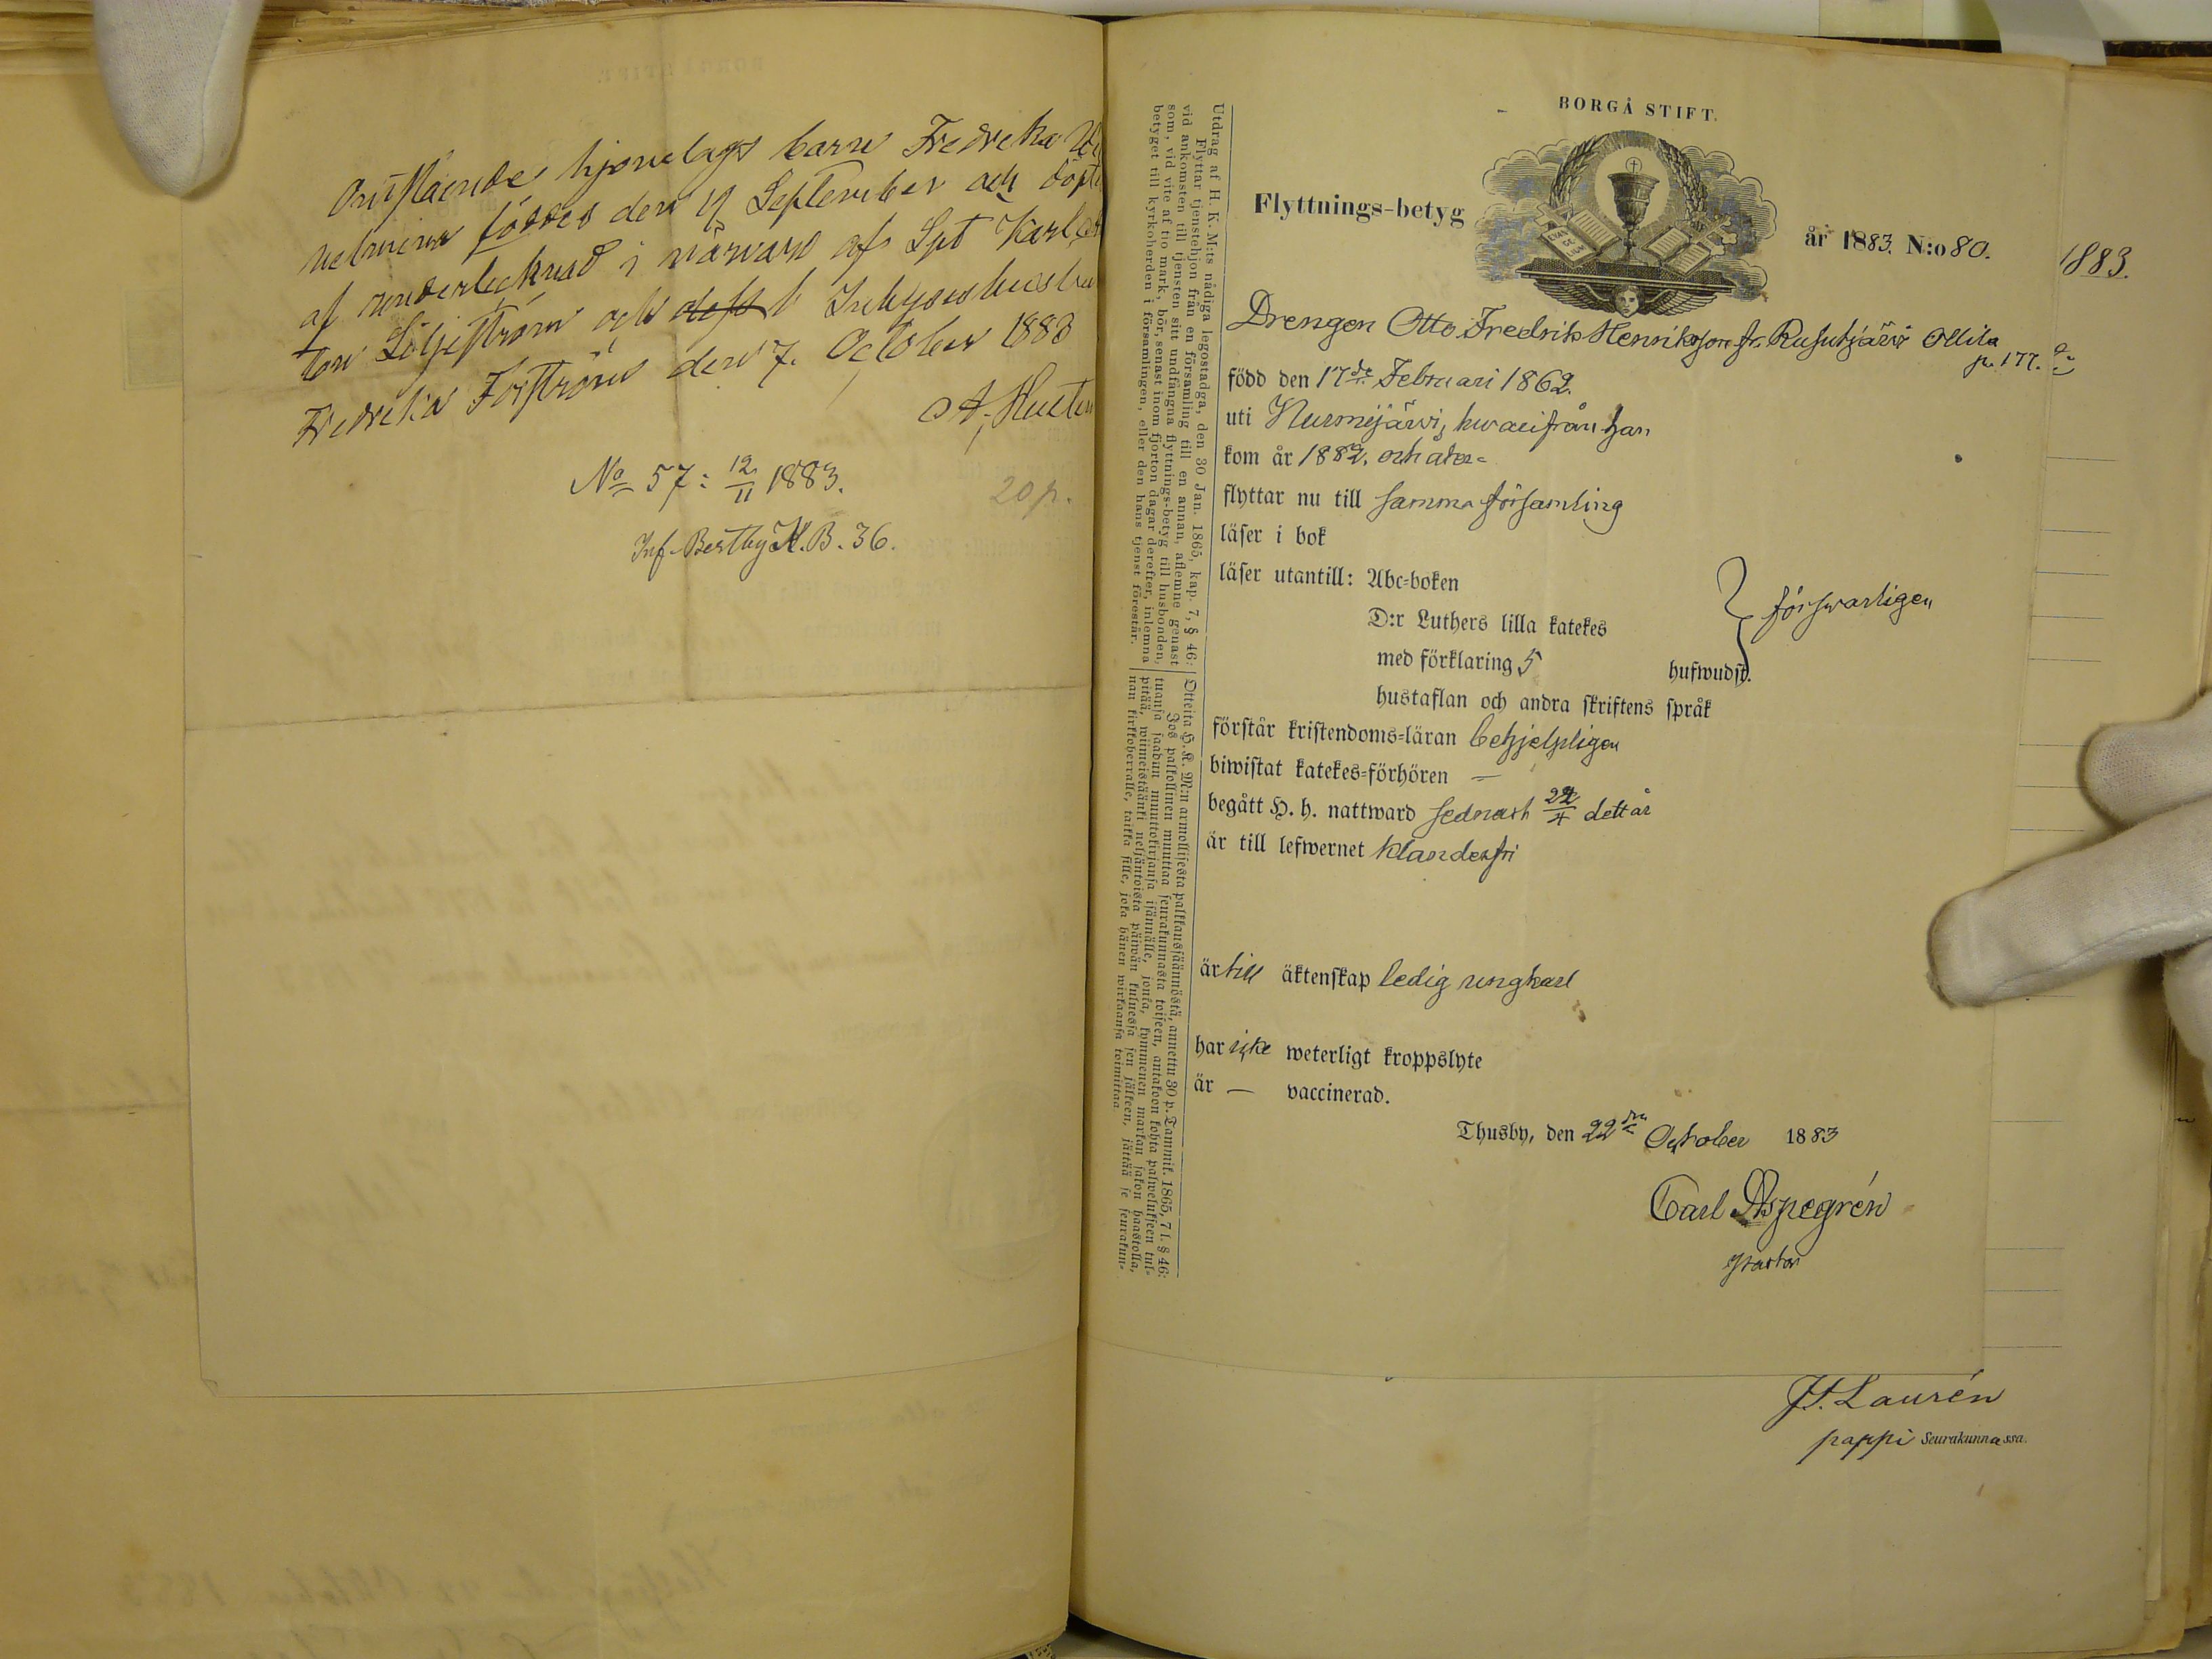 Omstående hjonelags barn Fredrika
helmina föddes den 17 September och döpt
af undertecknad i närvaro af Spt Karl
ton Liljeström och dess Inhyseshustru
Fredrika Forsström den 7. October 1883
No 57: 12/11 1883.
20 p.
Inf. Bertby K.B. 36.
BORGÅ STIFT.
Flyttnings-betyg
år 1883. N:o 80.
1883.
Drengen Otto Fredrik Henriksson fr. Rusutjärvi Ollila
p. 177.
född den 17de Februari 1862.
uti Nurmijärvi, hvarifrån han
kom år 1882. och åter-
flyttar nu till samma församling
läser i bok
läser utantill: Abc-boken
D:r Luthers lilla katekes
försvarligen
med förklaring 5 hufwudst.
hustaflan och andra skriftens språk
förstår kristendoms-läran behjelpligen
biwistat katekes-förhören —
begått H. h. nattward sednast 22/4 dett år
är till lefwernet klanderfri
är till äktenskap ledig ungkarl
har icke weterligt kroppslyte
är — vaccinerad.
Thusby, den 22dra October 1883
Carl Aspegrén
pastor
Utdrag af H. K. M:ts nådiga legostadga, den 30 Jan. 1865, kap. 7, § 46:
Flyttar tjenstehjon från en församling till en annan, aflemne genast
vid ankomsten till tjensten sitt undfångna flyttnings-betyg till husbonden,
som, vid vite af tio mark, bör, senast inom fjorton dagar derefter, inlemna
betyget till kyrkoherden i församlingen, eller den hans tjenst förestår.
Otteita H. K. M:n armollisesta palkkaussäännöstä, annettu 30 p. Tammik. 1865, 7 l. § 46:
Jos palkollinen muuttaa seurakunnasta toiseen, antakoon kohta palwelukseen tul-
tuansa saadun muuttokirjansa isännälle, jonka, kymmenen markan sakon haastolla,
pitää, wiimeistäänki neljäntoista päiwän kuluessa sen jälkeen, jättää se seurakun-
nan kirkkoherralle, taikka sille, joka hänen wirkaansa toimittaa.
Laurén
pappi Seurakunnassa.